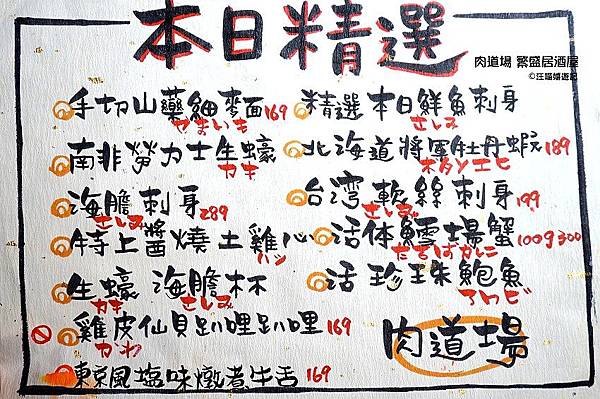 本日精選
肉道場 繁盛居酒屋
©汪喵嬉遊記
手切山藥細麥麵169
やまいも
南非勞力士生蠔
カキ
海膽刺身289
さしみ
特上醬燒土雞心
ハツ
生蠔 海膽杯
カキ さしみ
雞皮仙貝趴哩趴哩169
かわ
東京風塩味燉煮牛舌169
精選本日鮮魚刺身
さしみ
北海道將軍牡丹蝦189
ボタンエビ
台湾軟絲刺身199
さしみ
活体鱈場蟹100g300
たらばかに
活珍珠鮑魚
アワビ
肉道場